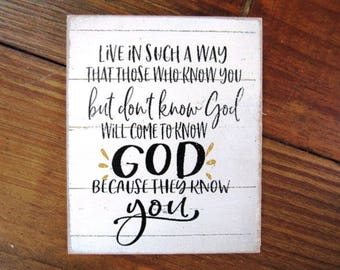 LIVE IN SUCH A WAY
THAT THOSE WHO KNOW YOU
but don't know God
WILL COME TO KNOW
GOD
BECAUSE THEY KNOW
you